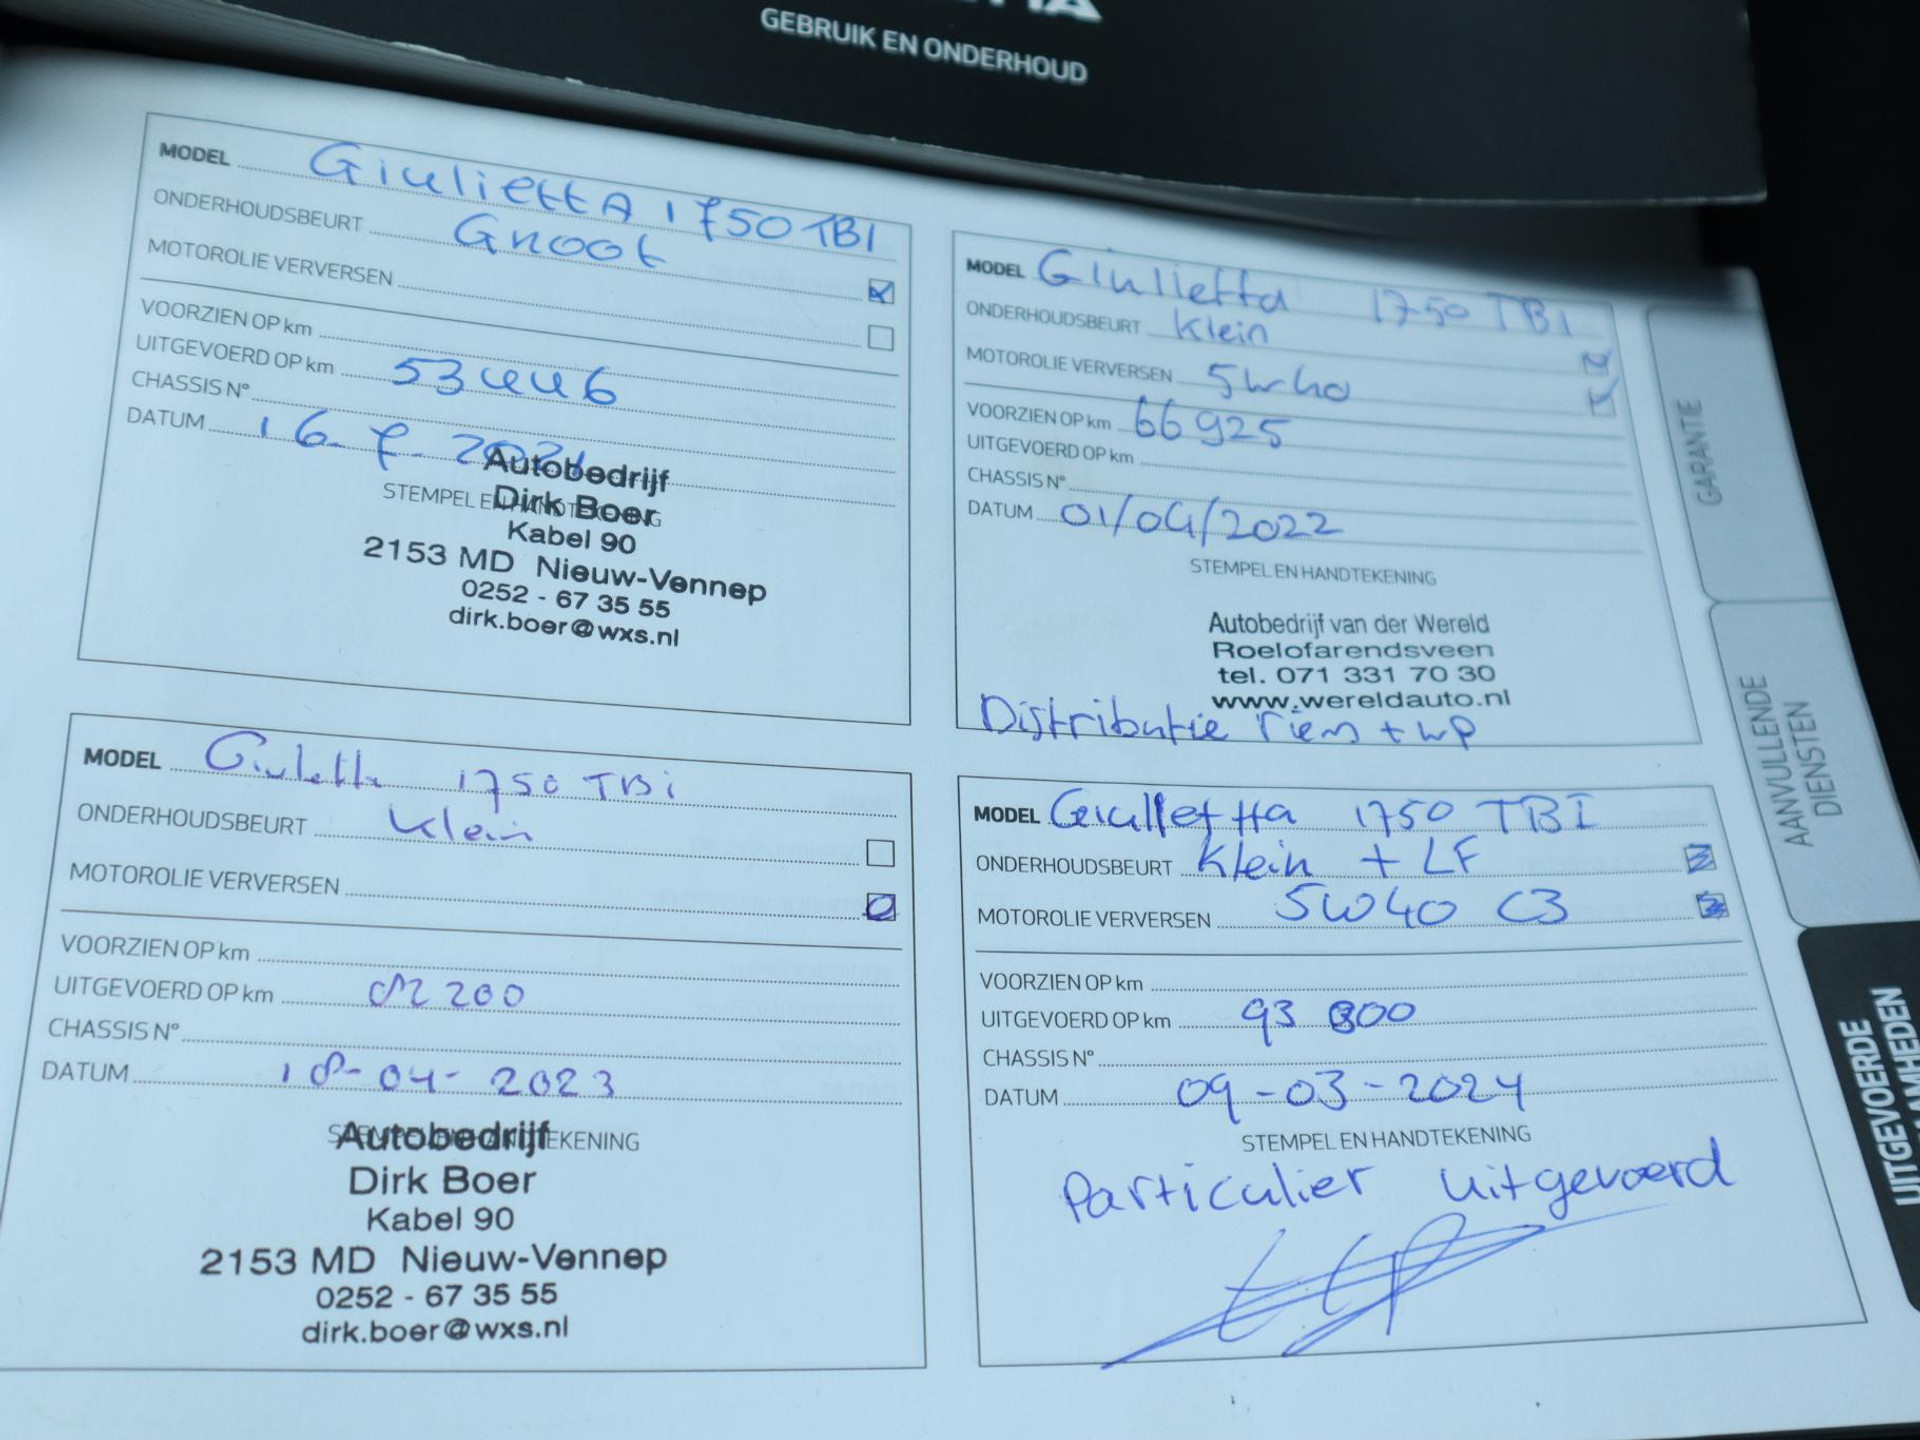 GEBRUIK EN ONDERHOUD
MODEL GiuliettA 1750 TBI
ONDERHOUDSBEURT Groot
MOTOROLIE VERVERSEN
VOORZIEN OP km
UITGEVOERD OP km 53446
CHASSIS N°
DATUM 16-7-2021
STEMPEL EN HANDTEKENING
Autobedrijf
Dirk Boer
Kabel 90
2153 MD Nieuw-Vennep
0252 - 67 35 55
dirk.boer@wxs.nl
MODEL Giulietta 1750 TBI
ONDERHOUDSBEURT Klein
MOTOROLIE VERVERSEN 5w40
VOORZIEN OP km 66925
UITGEVOERD OP km
CHASSIS N°
DATUM 01/04/2022
STEMPEL EN HANDTEKENING
Autobedrijf van der Wereld
Roelofarendsveen
tel. 071 331 70 30
www.wereldauto.nl
Distributie riem + wp
MODEL Giulietta 1750 TBi
ONDERHOUDSBEURT Klein
MOTOROLIE VERVERSEN
VOORZIEN OP km
UITGEVOERD OP km 82200
CHASSIS N°
DATUM 18-04-2023
STEMPEL EN HANDTEKENING
Autobedrijf
Dirk Boer
Kabel 90
2153 MD Nieuw-Vennep
0252 - 67 35 55
dirk.boer@wxs.nl
MODEL Giullietta 1750 TBI
ONDERHOUDSBEURT Klein + LF
MOTOROLIE VERVERSEN 5W40 C3
VOORZIEN OP km
UITGEVOERD OP km 93 800
CHASSIS N°
DATUM 09-03-2024
STEMPEL EN HANDTEKENING
Particulier uitgevoerd
GARANTIE
AANVULLENDE
DIENSTEN
UITGEVOERDE